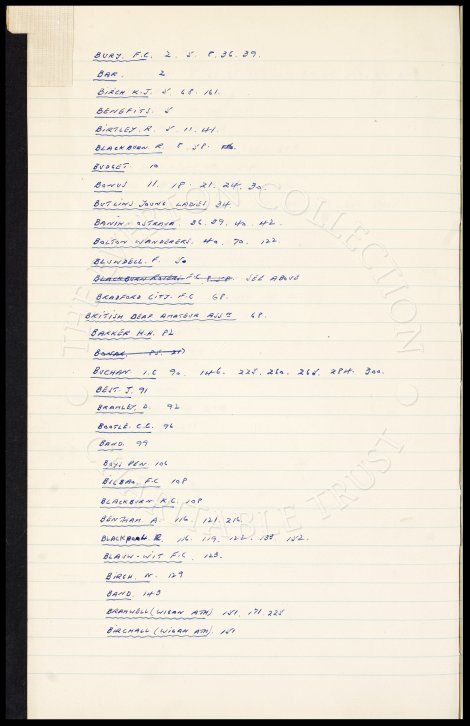 BURY. F.C. 2. 5. 8. 36. 39.
BAR. 2
BIRCH K.J. 5. 68. 161.
BENEFITS. 5
BIRTLEY. R. 5. 11. 41.
BLACKBURN R. 8. 58.
BUDGET 10
BONUS 11. 18. 21. 24. 30.
BUTLINS YOUNG LADIES 34.
BANIK-OSTRAVA 36. 39. 40. 42.
BOLTON WANDERERS. 40. 70. 122.
BLUNDELL. F. 50
BLACKBURN ROVERS F.C. SEE ABOVE
BRADFORD CITY. F.C 68.
BRITISH DEAF AMATEUR ASSN 68.
BARKER H.H. 82
BUCHAN. I.C 90. 146. 225. 260. 265. 284. 300.
BEST. J. 91
BRAMLEY. D. 92.
BOOTLE. C.C. 96
BAND. 99
BOYS PEN. 106
BILBAO. F.C 108
BLACKBURN K.C. 108
BENTHAM A. 116. 121. 216.
BLACKPOOL 116. 119. 122. 135. 152.
BLAUW-WIT F.C. 123.
BIRCH. N. 129
BAND 143
BRAMWELL (WIGAN ATH) 151. 171. 225
BIRCHALL (WIGAN ATH). 151
THE COLLECTION
CHARITABLE TRUST